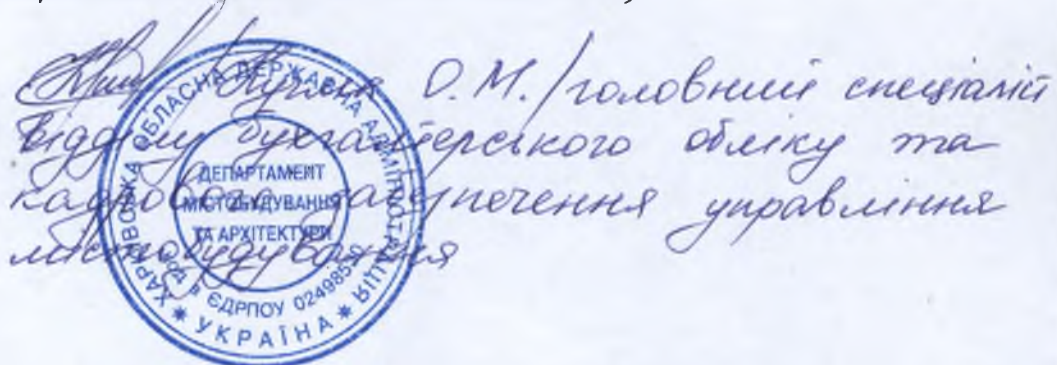 О.М./головний спеціаліст
відділу бухгалтерського обліку та
кадрового забезпечення управління
містобудування
ХАРКІВСЬКА ОБЛАСНА ДЕРЖАВНА АДМІНІСТРАЦІЯ
ДЕПАРТАМЕНТ
МІСТОБУДУВАННЯ
ТА АРХІТЕКТУРИ
ЄДРПОУ
* УКРАЇНА *